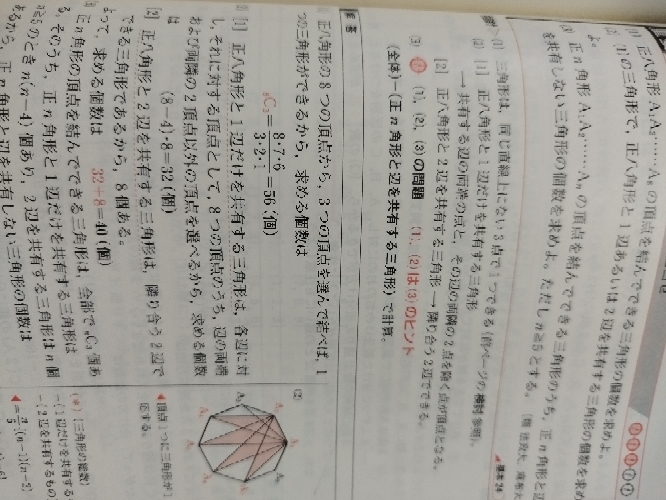 (1) 正八角形 A₁A₂……A₈ の頂点を結んでできる三角形の個数を求めよ。
(2) (1)の三角形で，正八角形と1辺あるいは2辺を共有する三角形の個数を求め
よ。
(3) 正n角形 A₁A₂……Aₙ の頂点を結んでできる三角形のうち，正n角形と辺
を共有しない三角形の個数を求めよ。ただしn≧5とする。
基本24
(1) 三角形は，同じ直線上にない3点で1つできる(前ページの検討参照)。
(2) [1] 正八角形と1辺だけを共有する三角形
→共有する辺の両端の点と，その辺の両隣の2点を除く点が頂点となる。
[2] 正八角形と2辺を共有する三角形→隣り合う2辺でできる。
(3) (1)，(2)，(3)の問題 (1)，(2)は(3)のヒント
(全体)−(正n角形と辺を共有する三角形)で計算。
解答
正八角形の8つの頂点から，3つの頂点を選んで結べば，1
つの三角形ができるから，求める個数は
₈C₃=8・7・6/3・2・1=56(個)
[1] 正八角形と1辺だけを共有する三角形は，各辺に対
し，それに対する頂点として，8つの頂点のうち，辺の両端
および両隣の2頂点以外の頂点を選べるから，求める個数
は
(8−4)・8=32(個)
[2] 正八角形と2辺を共有する三角形は，隣り合う2辺で
できる三角形であるから，8個ある。
よって，求める個数は 32+8=40(個)
正n角形の頂点を結んでできる三角形は，全部でₙC₃個あ
る。そのうち，正n角形と1辺だけを共有する三角形は
n≧5のときn(n−4)個あり，2辺を共有する三角形はn個
あるから，正n角形と辺を共有しない三角形の個数は
(2)
◀頂点1つに三角形が1
応する。
(*) (三角形の総数)
−(1辺だけを共有する
−(2辺を共有するもの